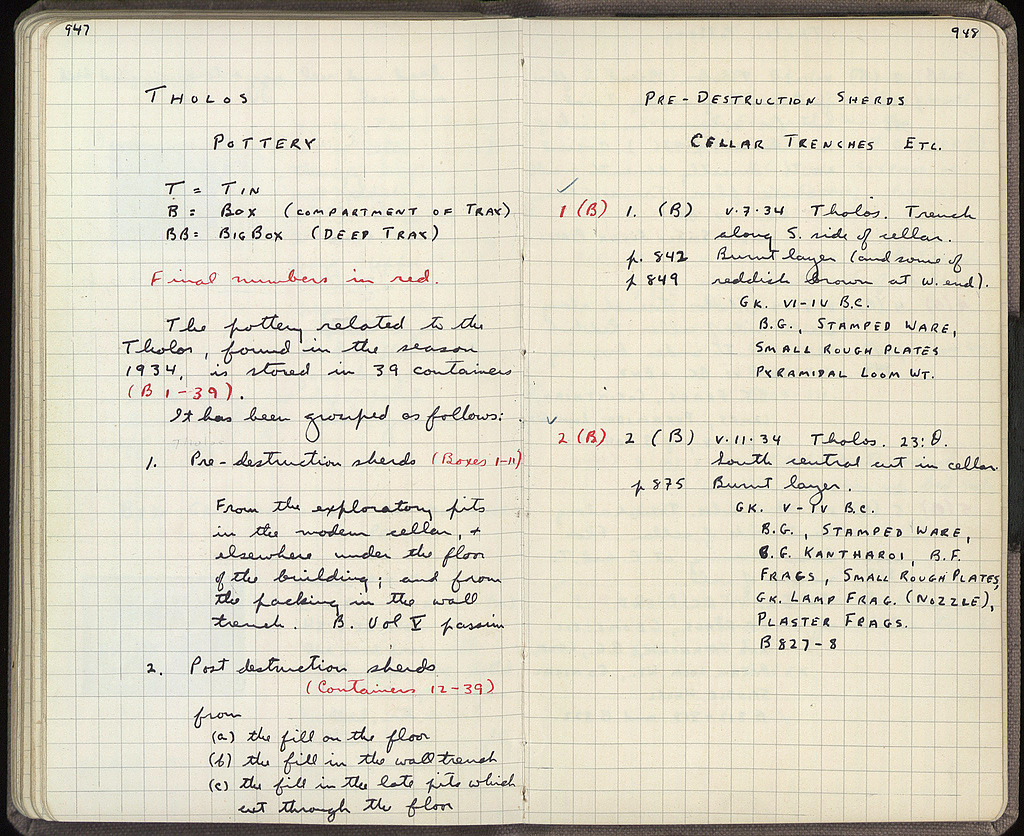 947
THOLOS
POTTERY
T = TIN
B = BOX (COMPARTMENT OF TRAY)
BB = BIG BOX (DEEP TRAY)
Final numbers in red.
The pottery related to the
Tholos, found in the season
1934, is stored in 39 containers
(B 1-39).
It has been grouped as follows:
1. Pre-destruction sherds (Boxes 1-11)
From the exploratory pits
in the modern cellar, +
elsewhere under the floor
of the building; and from
the packing in the wall
trench. B. Vol V passim
2. Post destruction sherds
(Containers 12-39)
from
(a) the fill on the floor
(b) the fill in the wall trench
(c) the fill in the late pits which
cut through the floor
948
PRE-DESTRUCTION SHERDS
CELLAR TRENCHES ETC.
1 (B) 1. (B) V.7.34 Tholos. Trench
along S. side of cellar.
p. 842 Burnt layer (and some of
p 849 reddish brown at W. end).
GK. VI-IV B.C.
B.G., STAMPED WARE,
SMALL ROUGH PLATES
PYRAMIDAL LOOM WT.
2 (B) 2 (B) V.11.34 Tholos. 23:Θ.
South central cut in cellar.
p 875 Burnt layer.
GK. V-IV B.C.
B.G., STAMPED WARE,
B.G. KANTHAROI, B.F.
FRAGS, SMALL ROUGH PLATES,
GK. LAMP FRAG. (NOZZLE),
PLASTER FRAGS.
B 827-8